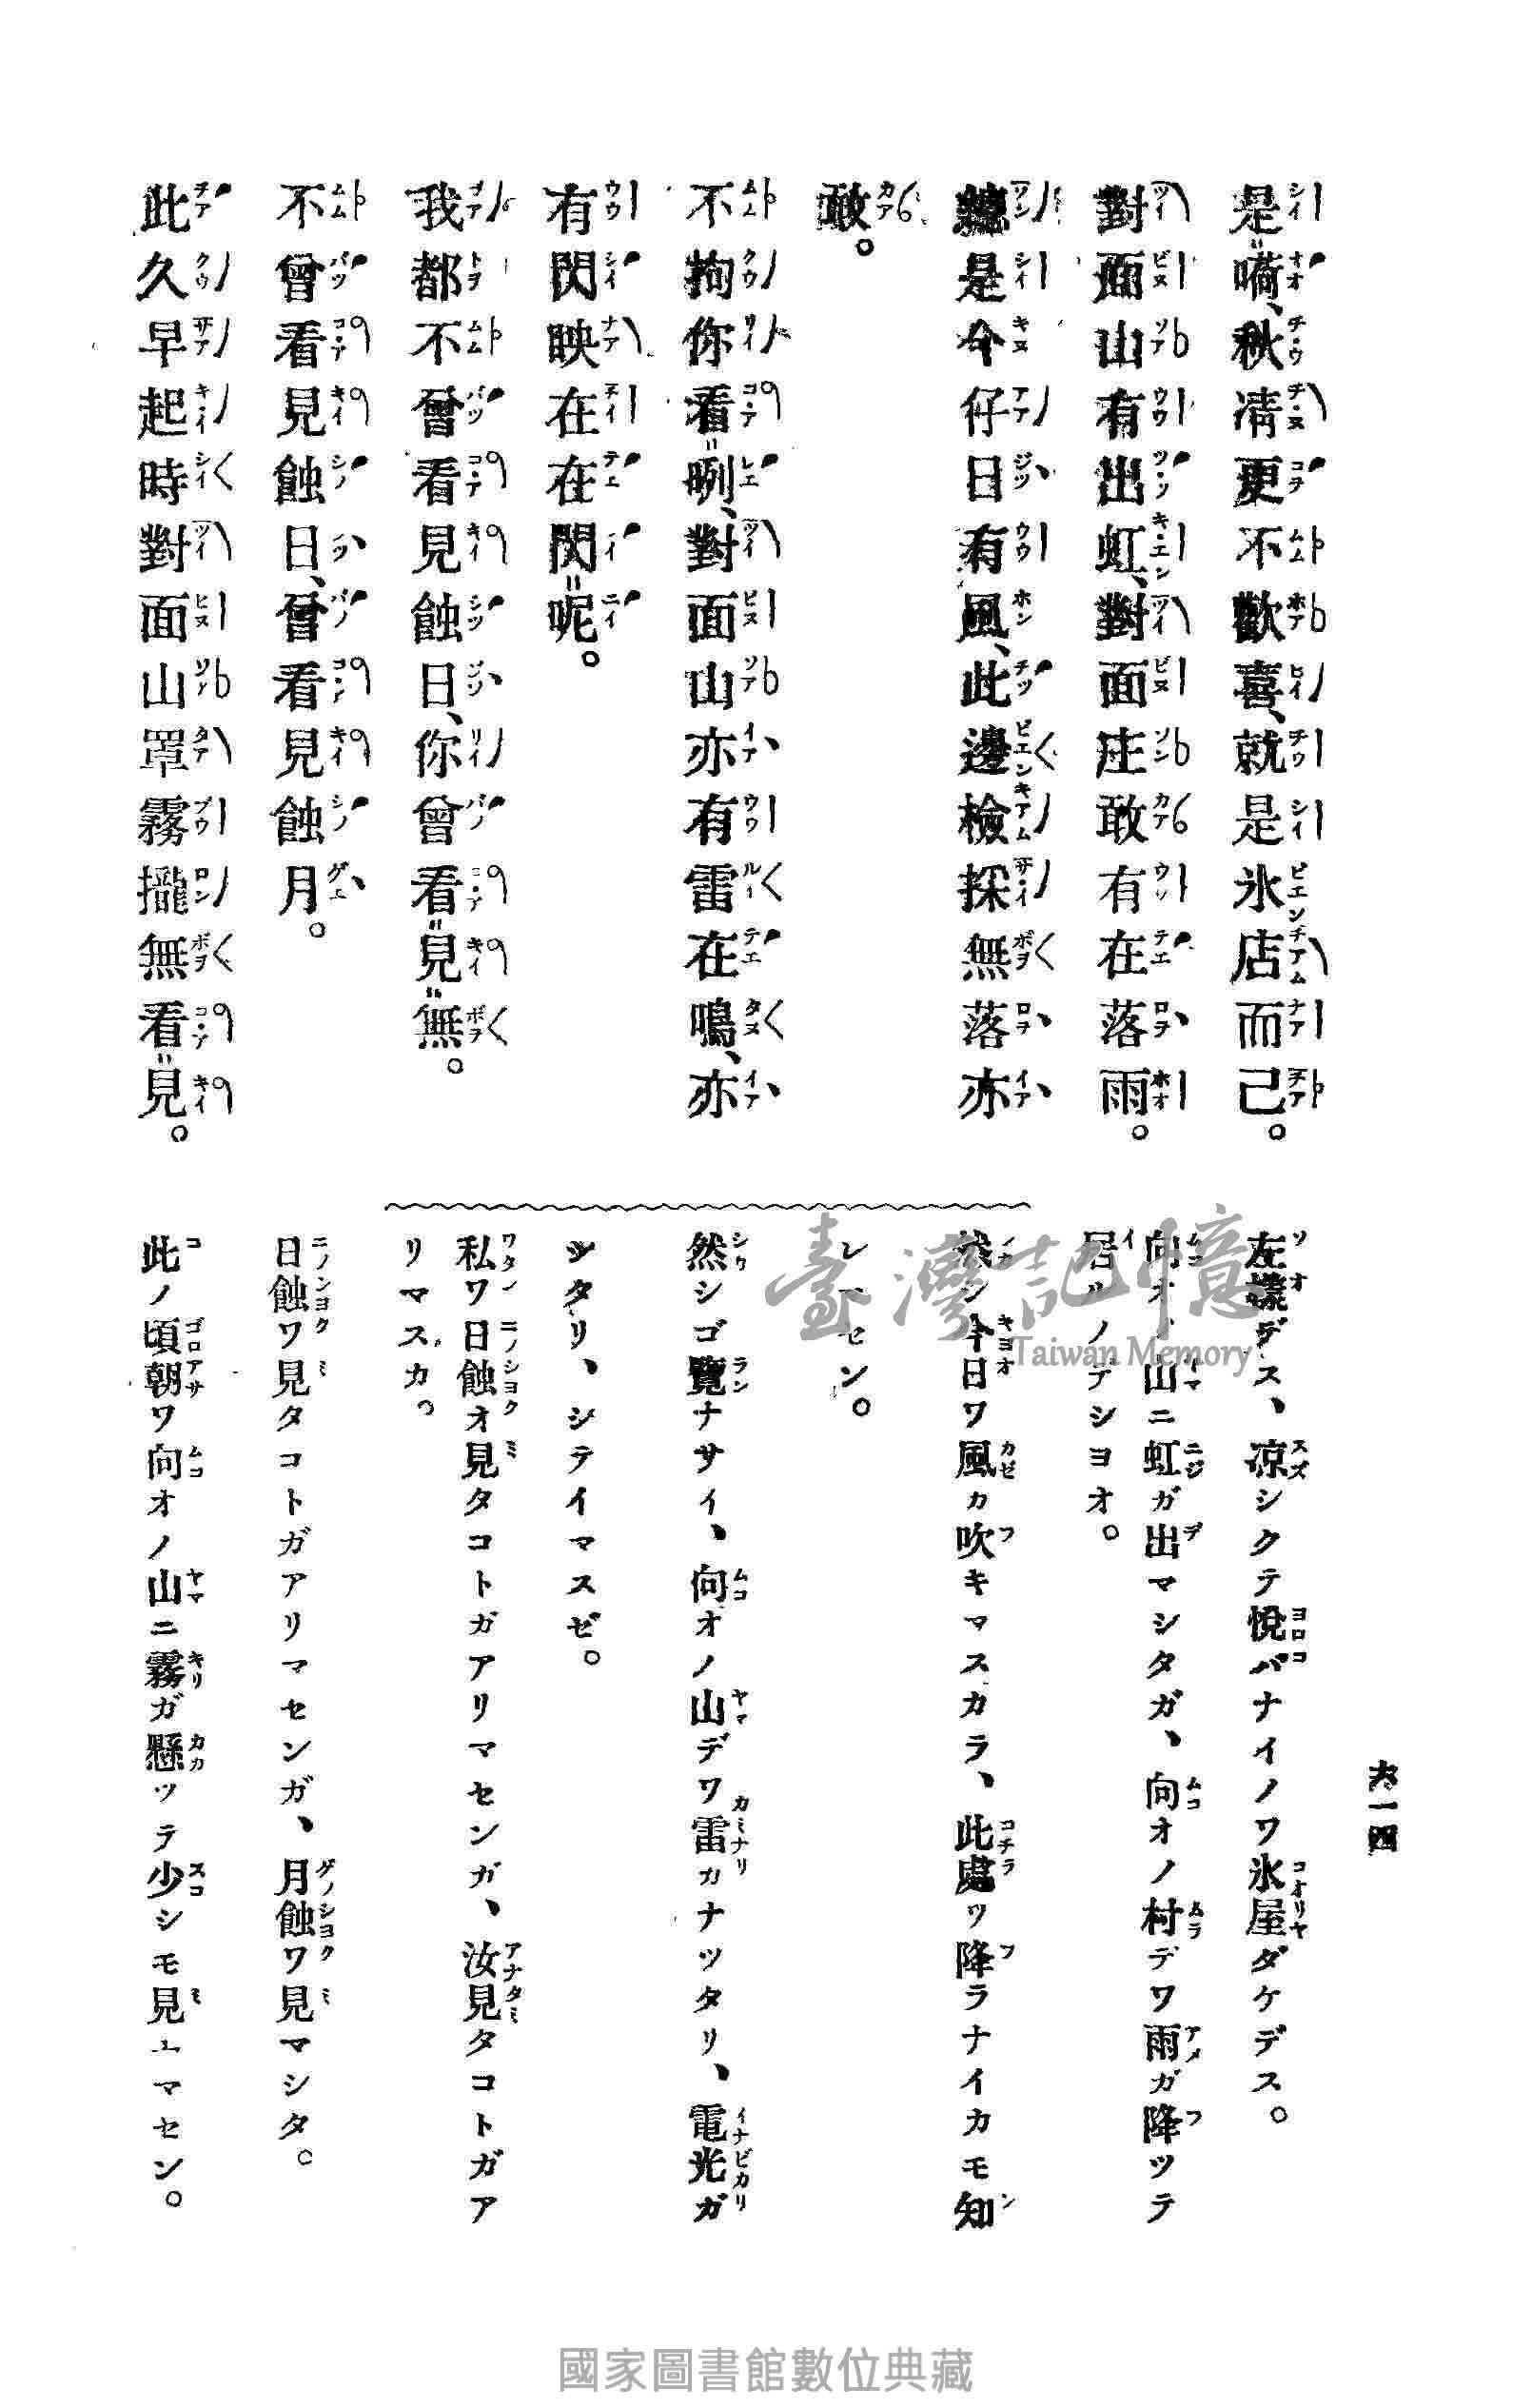 六一四
是嗬、秋凊更不歡喜、就是氷店而己。
對面山有出虹、對面庄敢有在落雨。
總是今仔日有風、此邊檢採無落亦
敢。
不拘你看咧、對面山亦有雷在鳴、亦
有閃映在在閃呢。
我都不曾看見蝕日、你曾看見無。
不曾看見蝕日、曾看見蝕月。
此久早起時對面山罩霧攏無看見。
左樣デス、凉シクテ悅バナイノワ氷屋ダケデス。
向オノ山ニ虹ガ出マシタガ、向オノ村デワ雨ガ降ツテ
居ルノデシヨオ。
然シ今日ワ風カ吹キマスカラ、此處ワ降ラナイカモ知
レマセン。
然シゴ覽ナサイ、向オノ山デワ雷カナツタリ、電光ガ
シタリ、シテイマスゼ。
私ワ日蝕オ見タコトガアリマセンガ、汝見タコトガア
リマスカ。
日蝕ワ見タコトガアリマセンガ、月蝕ワ見マシタ。
此ノ頃朝ワ向オノ山ニ霧ガ懸ツテ少シモ見エマセン。
臺灣記憶
Taiwan Memory
國家圖書館數位典藏